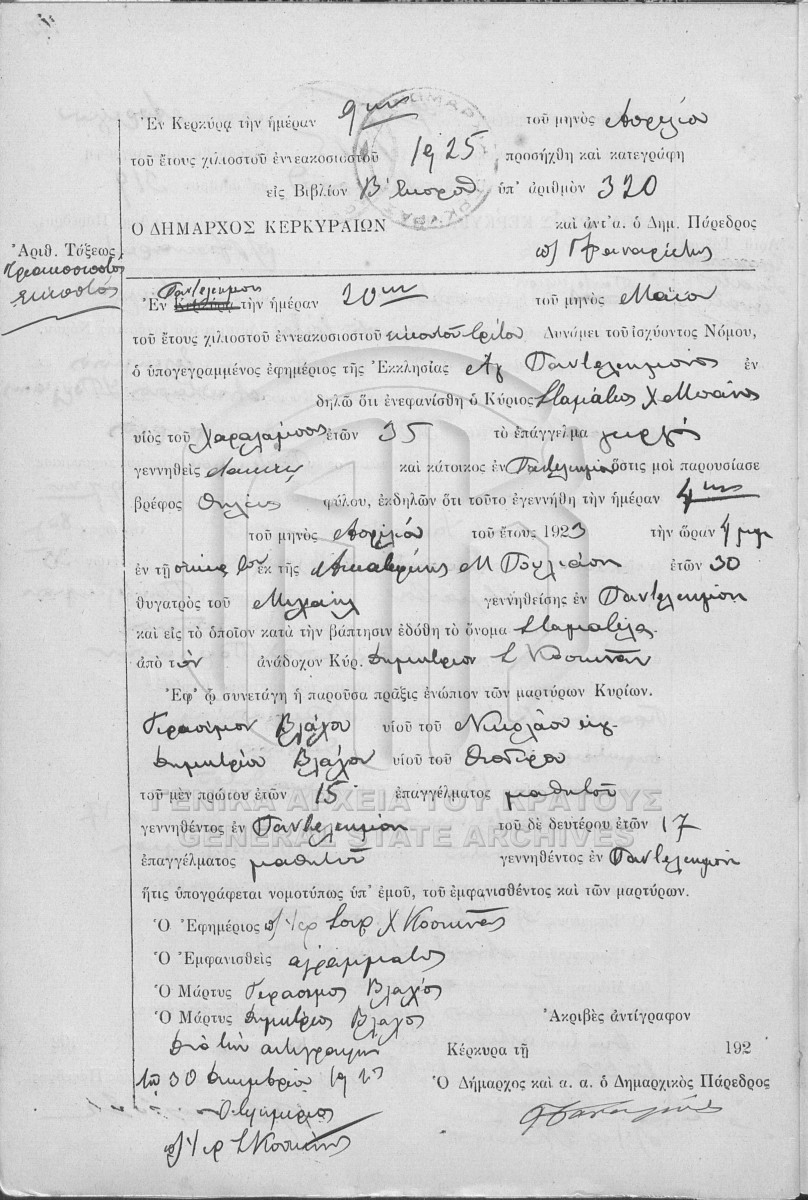 Ἐν Κερκύρᾳ τὴν ἡμέραν 9ην τοῦ μηνὸς Ἀπριλίου
τοῦ ἔτους χιλιοστοῦ ἐννεακοσιοστοῦ 1925 προσήχθη καὶ κατεγράφη
εἰς Βιβλίον Β΄ ὑπ᾽ ἀριθμὸν 320
Ο ΔΗΜΑΡΧΟΣ ΚΕΡΚΥΡΑΙΩΝ καὶ ἀντ᾽α. ὁ Δημ. Πάρεδρος
Ἀριθ. Τάξεως
τριακοσιοστὸς
εἰκοστὸς
Παντελεήμονι
Ἐν Κερκύρᾳ τὴν ἡμέραν 20ην τοῦ μηνὸς Μαΐου
τοῦ ἔτους χιλιοστοῦ ἐννεακοσιοστοῦ εἰκοστοῦ τρίτου Δυνάμει τοῦ ἰσχύοντος Νόμου,
ὁ ὑπογεγραμμένος ἐφημέριος τῆς Ἐκκλησίας Ἁγ Παντελεήμονος ἐν
δηλῶ ὅτι ἐνεφανίσθη ὁ Κύριος Σταμάτιος Χ
υἱὸς τοῦ Χαραλάμπους ἐτῶν 35 τὸ ἐπάγγελμα γεωργὸς
γεννηθεὶς καὶ κάτοικος ἐν Παντελεήμονι ὅστις μοὶ παρουσίασε
βρέφος θήλεως φύλου, ἐκδηλῶν ὅτι τοῦτο ἐγεννήθη τὴν ἡμέραν 4ην
τοῦ μηνὸς Ἀπριλίου τοῦ ἔτους 1923 τὴν ὥραν 4 μμ
ἐν τῇ οἰκίᾳ του ἐκ τῆς Αἰκατερίνης Μ Πουλιάση ἐτῶν 30
θυγατρὸς τοῦ Μιχαὴλ γεννηθείσης ἐν Παντελεήμονι
καὶ εἰς τὸ ὁποῖον κατὰ τὴν βάπτισιν ἐδόθη τὸ ὄνομα Σταματέλα
ἀπὸ τὸν ἀνάδοχον Κύρ. Δημήτριον Σ Κοσκινᾶν
Ἐφ᾽ ᾧ συνετάγη ἡ παροῦσα πρᾶξις ἐνώπιον τῶν μαρτύρων Κυρίων.
Γερασίμου Βλάχου υἱοῦ τοῦ Νικολάου
Δημητρίου Βλάχου υἱοῦ τοῦ Θεοδώρου
τοῦ μὲν πρώτου ἐτῶν 15 ἐπαγγέλματος μαθητοῦ
ΓΕΝΙΚΑ ΑΡΧΕΙΑ ΤΟΥ ΚΡΑΤΟΥΣ
γεννηθέντος ἐν Παντελεήμονι τοῦ δὲ δευτέρου ἐτῶν 17
GENERAL STATE ARCHIVES
ἐπαγγέλματος μαθητοῦ γεννηθέντος ἐν Παντελεήμονι
ἥτις ὑπογράφεται νομοτύπως ὑπ᾽ ἐμοῦ, τοῦ ἐμφανισθέντος καὶ τῶν μαρτύρων.
Ὁ Ἐφημέριος Χ Κοσκινᾶς
Ὁ Ἐμφανισθεὶς ἀγράμματος
Ὁ Μάρτυς Γεράσιμος Βλάχος
Ὁ Μάρτυς Δημήτριος Βλάχος Ἀκριβὲς ἀντίγραφον
Διὰ τὴν ἀντιγραφὴν Κέρκυρα τῇ 192
τῇ 30 Δεκεμβρίου 1923 Ὁ Δήμαρχος καὶ α. α. ὁ Δημαρχικὸς Πάρεδρος
Ὁ Ἐφημέριος
Σ Κοσκινᾶς